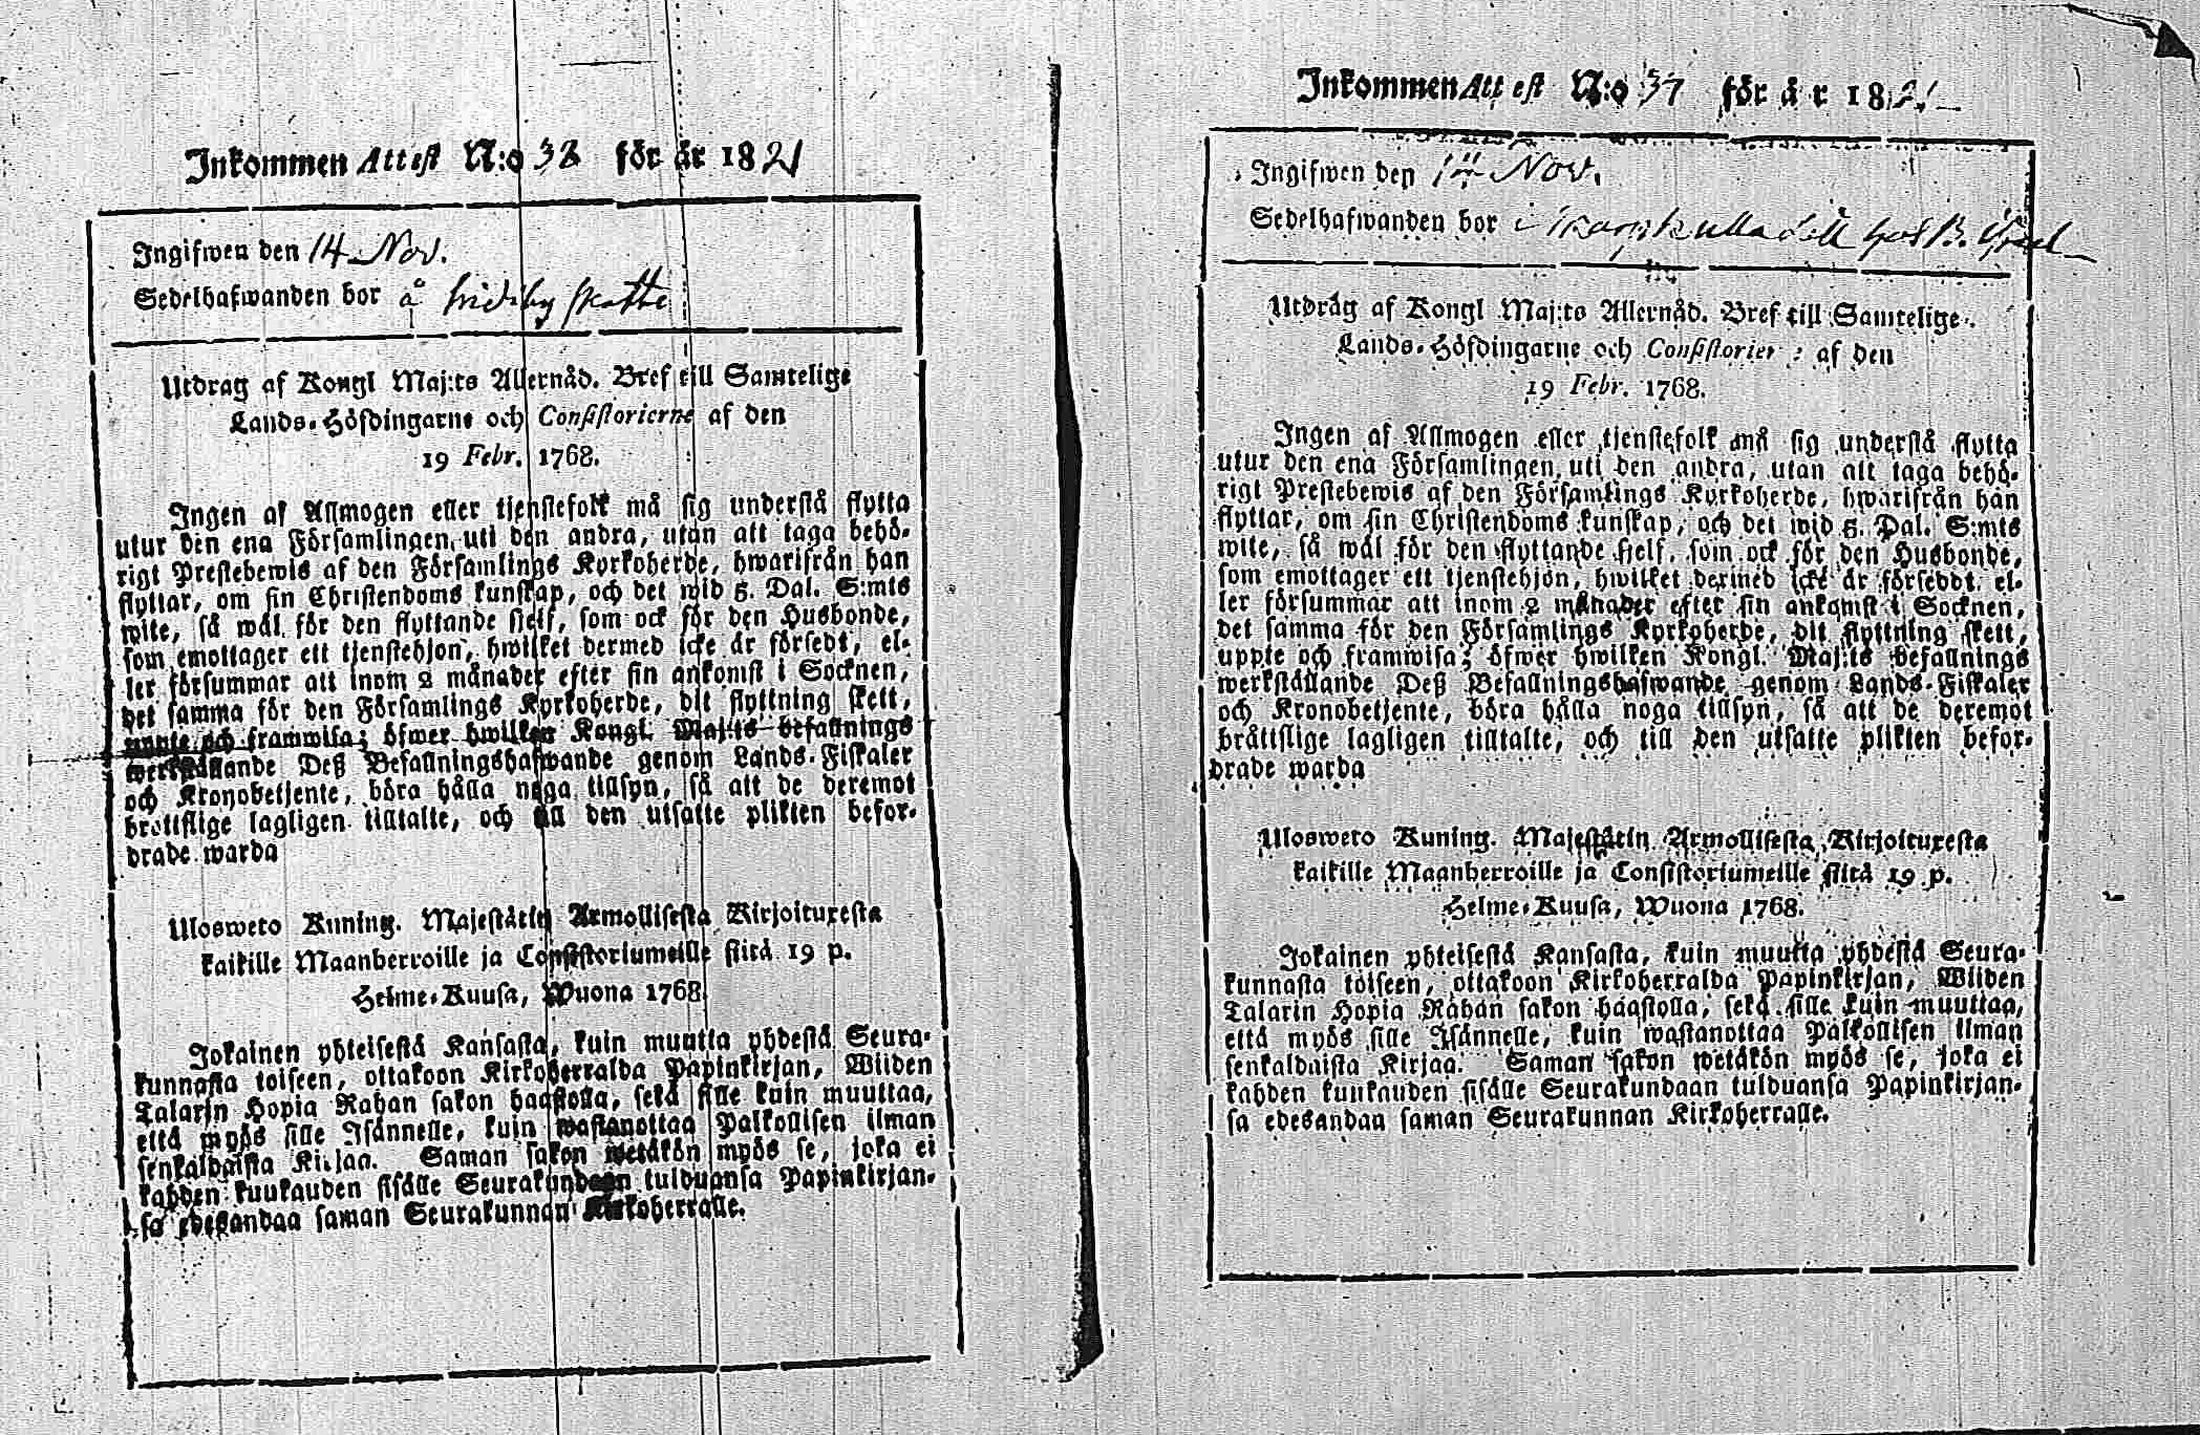 Inkommen Attest N:o 38 för år 1821
Ingifwen den 14 Nov.
Sedelhafwanden bor å
Utdrag af Kongl Maj:ts Allernåd. Bref till Samtelige
Lands-Höfdingarne och Consistorierne af den
19 Febr. 1768.
Ingen af Allmogen eller tjenstefolk må sig understå flytta
utur den ena Församlingen uti den andra, utan att taga behö-
rigt Prestebewis af den Församlings Kyrkoherde, hwarifrån han
flyttar, om sin Christendoms kunskap, och det wid 5. Dal. S:mts
wite, så wäl för den flyttande sjelf, som ock för den Husbonde,
som emottager ett tjenstehjon, hwilket dermed icke är försedt, el-
ler försummar att inom 2 månader efter sin ankomst i Socknen,
det samma för den Församlings Kyrkoherde, dit flyttning skett,
uppte och framwisa; öfwer hwilken Kongl. Maj:ts befallnings
werkställande Deß Befallningshafwande genom Lands-Fiskaler
och Kronobetjente, böra hålla noga tillsyn, så att de deremot
bråttslige lagligen tilltalte, och till den utsatte plikten befor-
drade warda
Ulosweto Kuning. Majestätin Armollisesta Kirjoituxesta
kaikille Maanherroille ja Consistoriumeille siitä 19 p.
Helme-Kuusa, Wuona 1768.
Jokainen yhteisestä Kansasta, kuin muutta yhdestä Seura-
kunnasta toiseen, ottakoon Kirkoherralda Papinkirjan, Wiiden
Talarin Hopia Rahan sakon haastolla, sekä sille kuin muuttaa,
että myös sille Isännelle, kuin wastanottaa Palkollisen ilman
senkaldaista Kirjaa. Saman sakon wetäkön myös se, joka ei
kahden kuukauden sisälle Seurakundaan tulduansa Papinkirjan-
sa edesandaa saman Seurakunnan Kirkoherralle.
Inkommen Attest N:o 37 för år 1821
Ingifwen den Nov.
Sedelhafwanden bor i hos B.
Utdrag af Kongl Maj:ts Allernåd. Bref till Samtelige
Lands-Höfdingarne och Consistorier : af den
19 Febr. 1768.
Ingen af Allmogen eller tjenstefolk må sig understå flytta
utur den ena Församlingen uti den andra, utan att taga behö-
rigt Prestebewis af den Församlings Kyrkoherde, hwarifrån han
flyttar, om sin Christendoms kunskap, och det wid 5. Dal. S:mts
wite, så wäl för den flyttande sjelf, som ock för den Husbonde,
som emottager ett tjenstehjon, hwilket dermed icke är förseddt, el-
ler försummar att inom 2 månader efter sin ankomst i Socknen,
det samma för den Församlings Kyrkoherde, dit flyttning skett,
uppte och framwisa; öfwer hwilken Kongl. Maj:ts befallnings
werkställande Deß Befallningshafwande genom Lands-Fiskaler
och Kronobetjente, böra hålla noga tillsyn, så att de deremot
bråttslige lagligen tilltalte, och till den utsatte plikten befor-
drade warda
Ulosweto Kuning. Majestätin Armollisesta Kirjoituxesta
kaikille Maanherroille ja Consistoriumeille siitä 19 p.
Helme-Kuusa, Wuona 1768.
Jokainen yhteisestä Kansasta, kuin muutta yhdestä Seura-
kunnasta toiseen, ottakoon Kirkoherralda Papinkirjan, Wiiden
Talarin Hopia Rahan sakon haastolla, sekä sille kuin muuttaa,
että myös sille Isännelle, kuin wastanottaa Palkollisen ilman
senkaldaista Kirjaa. Saman sakon wetäkön myös se, joka ei
kahden kuukauden sisälle Seurakundaan tulduansa Papinkirjan-
sa edesandaa saman Seurakunnan Kirkoherralle.